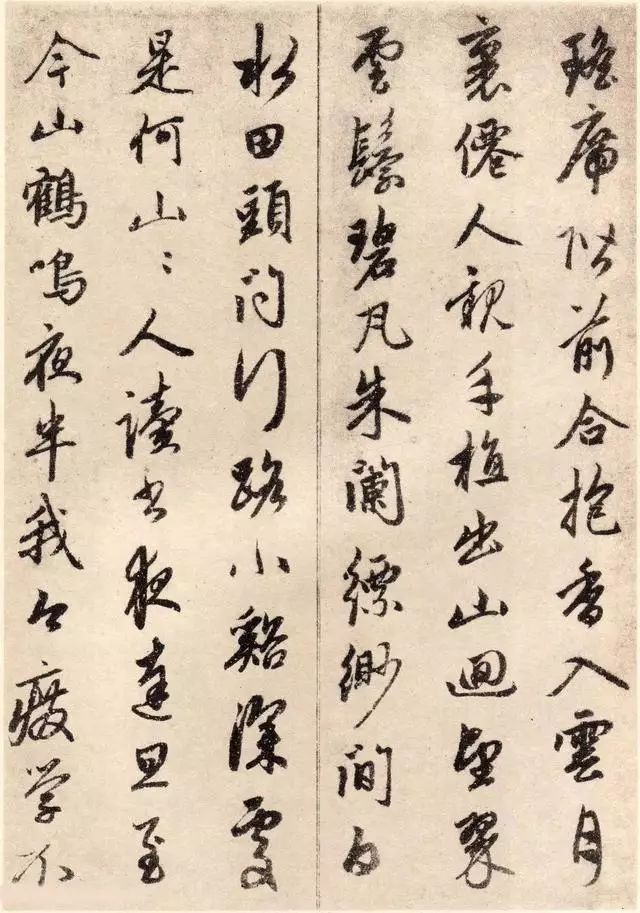 瑤席階前合抱香入雲月
裏僊人親手植出山迴望翠
雲鬟碧瓦朱闌縹緲間白
水田頭問行路小谿深處
是何山〻人讀書夜達旦至
今山鶴鳴夜半我今廢学不